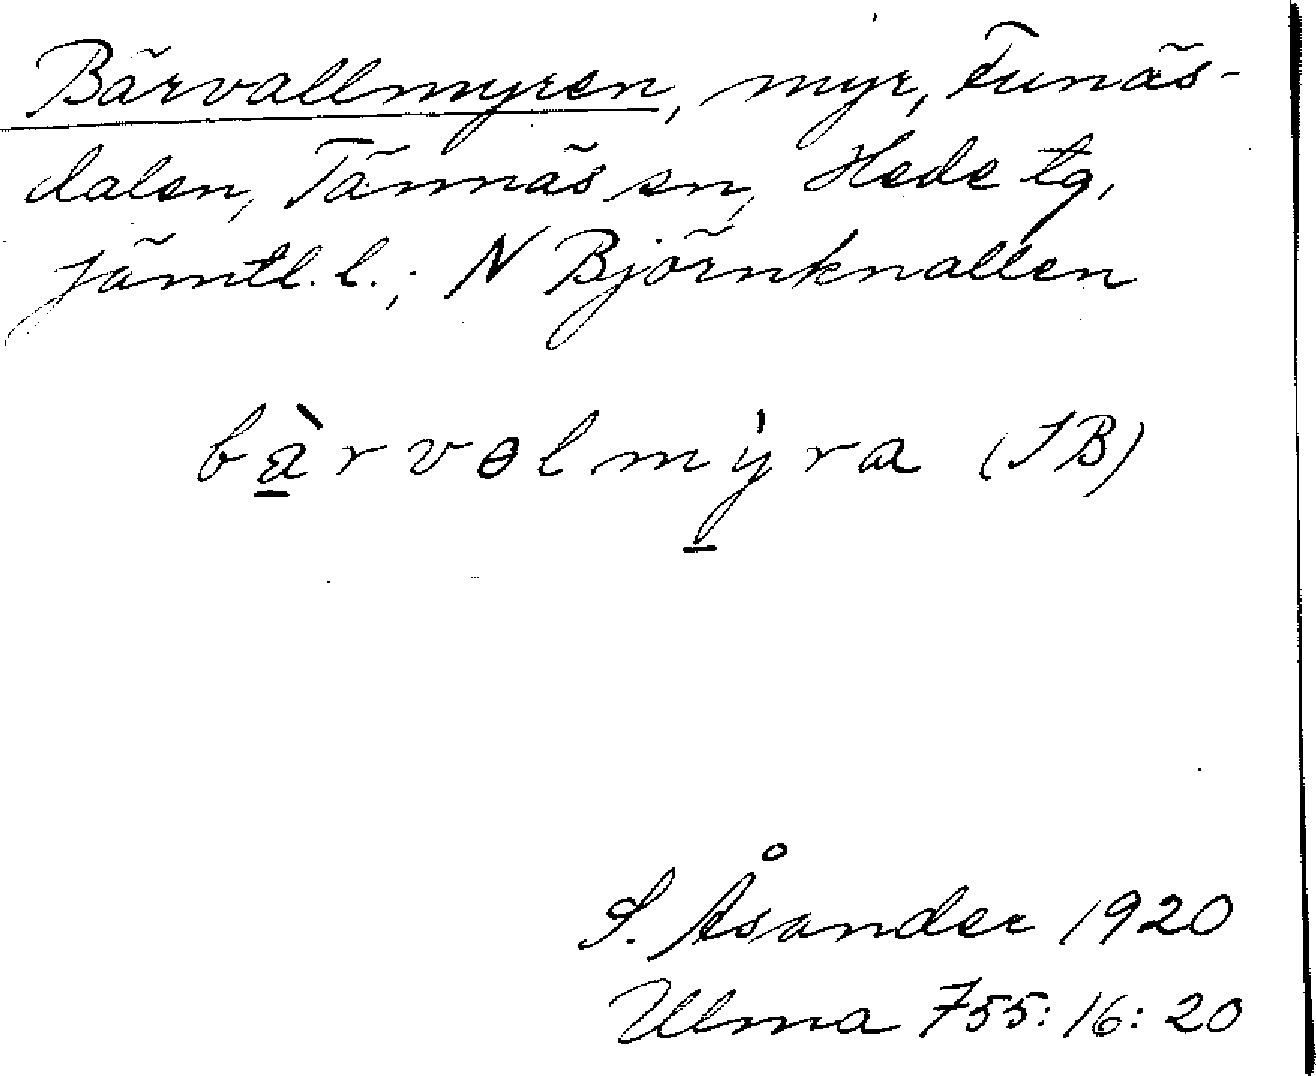 Bärvallmyren, myr, Funäs-
dalen, Tännäs sn, Hede tg,
Jämtl. l.; N Björnknallen
bàrvɵlmy̍ra (SB)
S. Åsander 1920
Ulma 755:16:20